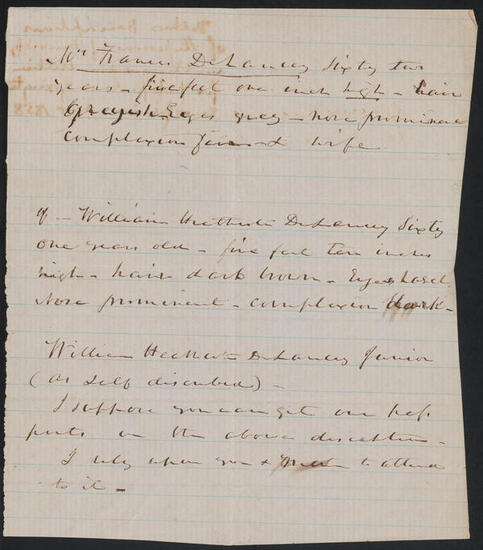 Mrs Frances DeLancey Sixty two
years - five feet one inch high - hair
greyish Eyes grey - nose prominent
complexion fair - & wife
of - William Heathcote DeLancey Sixty
one years old - five feet ten inches
high - hair dark brown - Eyes hazel
Nose prominent - complexion dark -
William Heathcote DeLancey Junior
(as self described) -
I suppose you can get our pass
ports on the above description -
I rely upon you & to attend
to it -